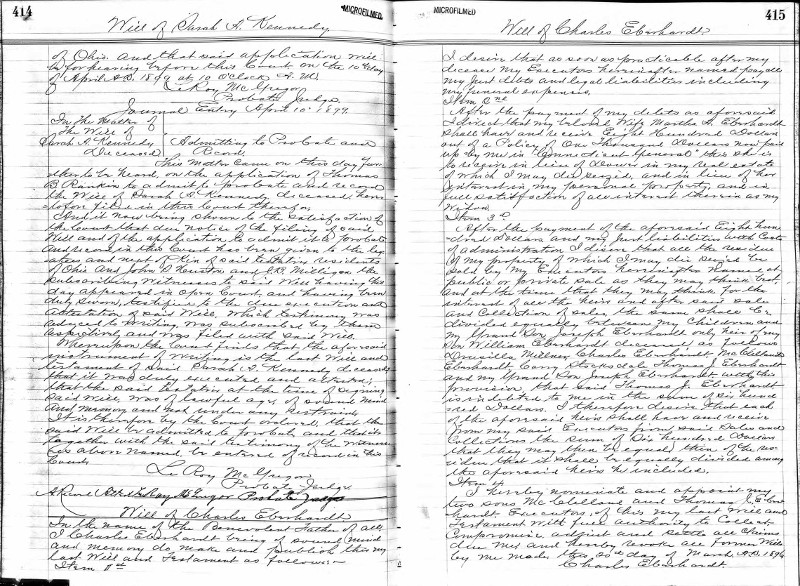 414
Will of Sarah A. Kennedy
MICROFILMED
of Ohio. And that said application will
be for hearing before this Court on the 10th day
of April A.D. 1899 at 10 O'Clock A.M.
LeRoy McGregor
Probate Judge
Journal Entry April 10th 1899.
In the Matter of
The Will of
Sarah A. Kennedy
Deceased
Admitting to Probate and
Record
This Matter came on this day fur-
ther to be heard, on the application of Thomas
B. Rankin to admit to probate and record
the Will of Sarah A. Kennedy, deceased, here-
tofore filed in this Court therefor.
And it now being shown to the satisfaction of
the Court that due notice of the filing of said
Will and of the application to admit it to Probate
and record in this Court has been given to the leg-
atees and next of Kin of said testatrix residents
of Ohio And John D. Newton and C.B. Milligan the
subscribing Witnesses to said Will having this
day appeared in Open Court, and having been
duly Sworn, testified to the due execution and
Attestation of said Will, Which testimony was
reduced to Writing, was subscribed by them
respectively and was filed with said Will.
Whereupon the Court finds that the aforesaid
instrument of Writing is the last Will and
testament of said Sarah A. Kennedy deceased
that it was duly executed and attested;
that the said testator at the time of signing
said Will, was of lawful age, of sound mind
and memory and not under any restraint.
It is therefore by the Court ordered that the
said Will be admitted to Probate, and that it
together with the said testimony of the Witness-
es above named be entered of record in this
Court.
LeRoy McGregor
Probate Judge
A Record Attest LeRoy McGregor Probate Judge
Will of Charles Eberhardt
In the name of the Benevolent Father of all
I Charles Eberhardt being of sound mind
and memory do make and publish this my
last Will and Testament as follows:-
Item 1st
MICROFILMED
415
Will of Charles Eberhardt
I desire that as soon as practicable after my
decease my Executors hereinafter named pay all
my just debts and legal liabilities including
my funeral expenses.
Item 2nd
After the payment of my debts as aforesaid
I direct that my beloved Wife Martha A. Eberhardt
shall have and receive Eight Hundred Dollars
out of a Policy of One Thousand Dollars now paid
up by me in "Connecticut General" this sh is
to receive in lieu of dower in my real estate
of which I may die seized, and in lieu of her
interest in my personal property, and in
full satisfaction of all interest therein as my
Widow.
Item 3d
After the payment of the aforesaid Eight hun-
dred Dollars and my just liabilities with Costs
of administration I desire that all the residue
of my property of which I may die seized be
sold by my Executors hereinafter named at
public or private sale as they may think best,
and at the time that they may think for the
interest of all the heirs and after said sale
and Collection of sales the same shall be
divided equally between my Children and
my Grand Son Joseph Eberhardt only heir of my
Son William Eberhardt deceased as follows
Drusilla Millner, Charles Eberhardt, McClelland
Eberhardt, Cary Stocksdale, Thomas J. Eberhardt
and my Grand Son Joseph Eberhardt with this
provision, that said Thomas J. Eberhardt
is indebted to me in the sum of Six hund-
red Dollars. I therefore desire that each
of the aforesaid heirs shall have and receive
from my said Executors from said Sales and
Collections the sum of Six hundred Dollars
that they may then be equal, then if the re-
sidue that it shall be equally divided among
the aforesaid heirs he included.
Item 4
I hereby nominate and appoint my
two sons McClelland and Thomas J. Eber-
hardt Executors, of this my last Will and
Testament with full authority to Collect
Compromise, adjust and settle all claims
due me and hereby revoke all former Wills
by me made this 20th day of March A.D. 1896
Charles Eberhardt.